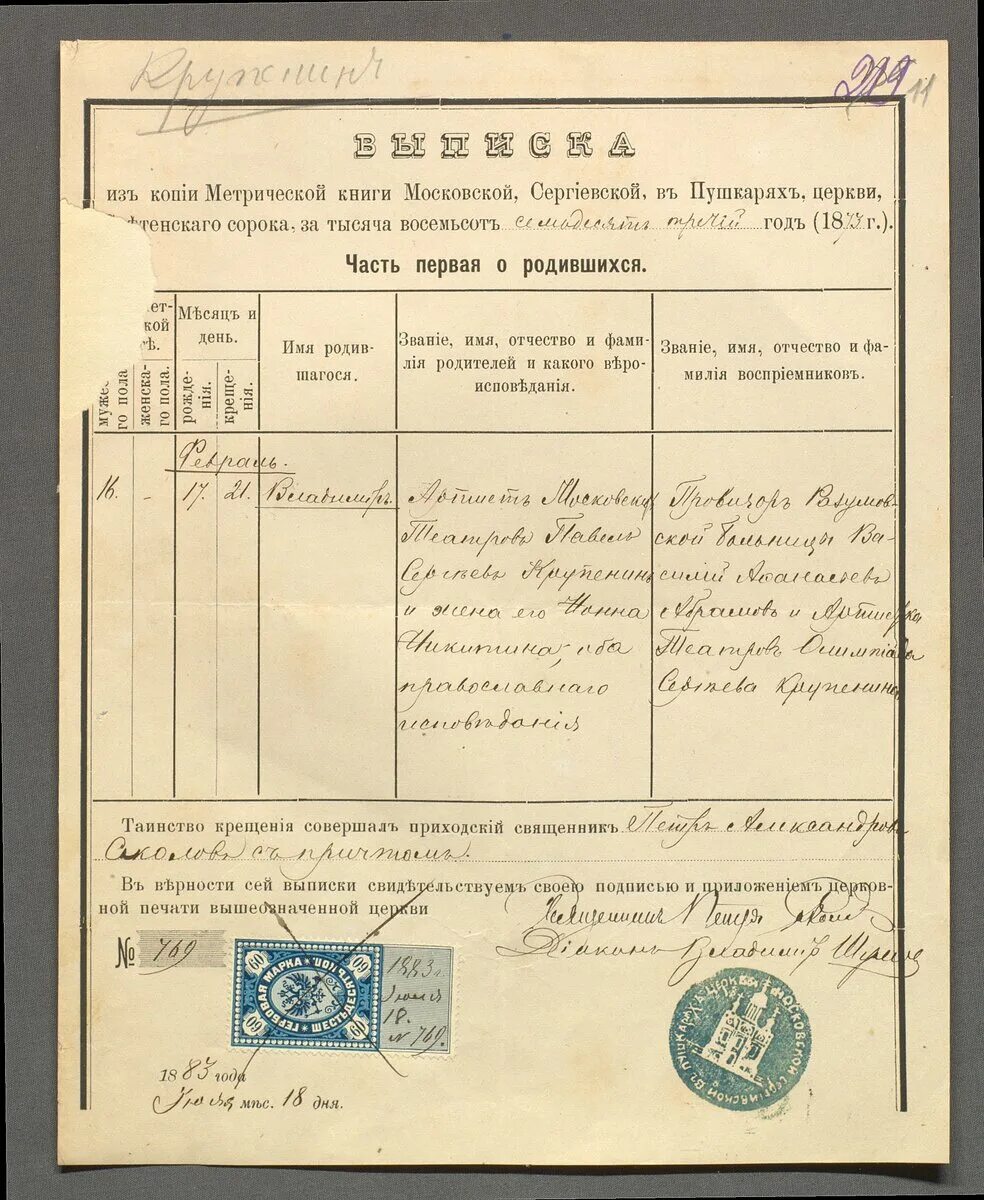 Крупенинъ
219 11
ВЫПИСКА
изъ копіи Метрической книги Московской, Сергіевской, въ Пушкаряхъ, церкви,
тенскаго сорока, за тысяча восемьсотъ семьдесятъ третій годъ (1873 г.).
Часть первая о родившихся.
ет-
кой
гѣ.
мужес
го пола
женска-
го пола.
Мѣсяцъ и
день.
рожде-
нія.
креще-
нія.
Имя родив-
шагося.
Званіе, имя, отчество и фами-
лія родителей и какого вѣро-
исповѣданія.
Званіе, имя, отчество и фа-
милія воспріемниковъ.
Февраль.
16. - 17. 21. Владиміръ.
Артистъ Московскихъ
Театровъ Павелъ
Сергѣевъ Крупенинъ
и жена его Іоанна
Никитина, оба
православнаго
исповѣданія
Провизоръ
ской больницы Ва-
силій Аѳанасьевъ
Абрамовъ и Артистка
Театровъ Олимпіада
Сергѣева Крупенина
Таинство крещенія совершалъ приходскій священникъ Петръ Александровъ
Соколовъ съ причтомъ.
Въ вѣрности сей выписки свидѣтельствуемъ своею подписью и приложеніемъ церков-
ной печати вышеозначенной церкви
Священникъ Петръ Соколовъ
Діаконъ Владиміръ
№ 769
ГЕРБОВАЯ МАРКА ШЕСТЬДЕСЯТЪ КОП.
60 60 60 60
1883 г.
Іюля
18.
№ 769.
МОСКОВСКОЙ СЕРГІЕВСКОЙ ВЪ ПУШКАРЯХЪ ЦЕРКВИ
1883 года
Іюля мѣс. 18 дня.